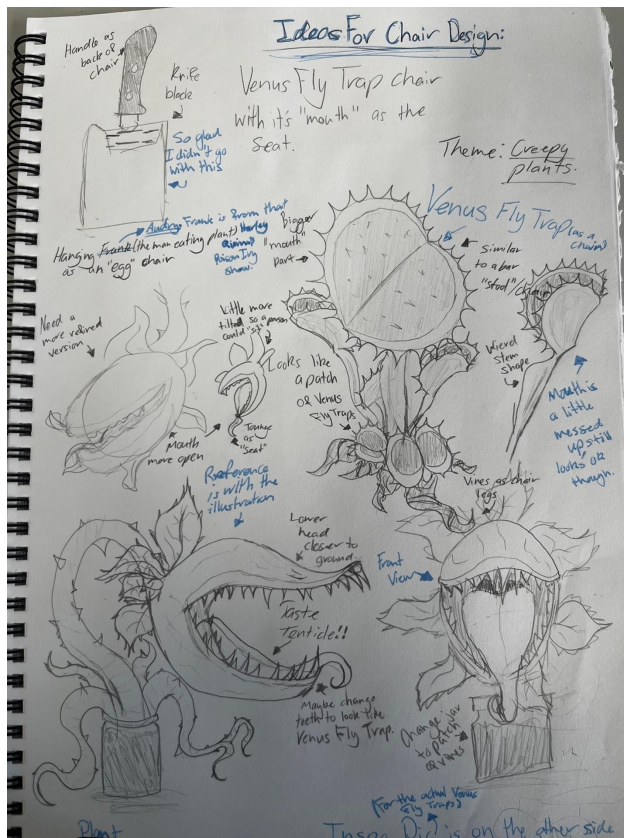 Ideas For Chair Design:
Handle as
back of
chair
Knife
block
So glad
I didn't go
with this
Venus Fly Trap chair
with it's "mouth" as the
seat.
Theme: Creepy
plants.
Venus Fly Trap (as a
chair)
Audrey Frank is from that
Hanging Frank (the man eating plant) Harley
as an "egg" chair
Poison Ivy
show.
Bigger
"mouth"
part
Similar
to a bar
"stool"/chair
Need a
more refined
version
Little more
tilted so a person
could "sit"
Looks like
a patch
of Venus
Fly Traps
Wierd
stem
shape
Mouth is
a little
messed
up still
looks ok
though.
Mouth
more open
Tounge
as
"seat"
Reference
is with the
illustration
Vines as chair
legs
Lower
head
closer to
ground.
Front
View
Taste
Tenticle!!
Maybe change
teeth to look like
Venus Fly Trap.
Change jar
to patch
of vines
(For the actual Venus
Fly Traps)
Plant
is on the other side